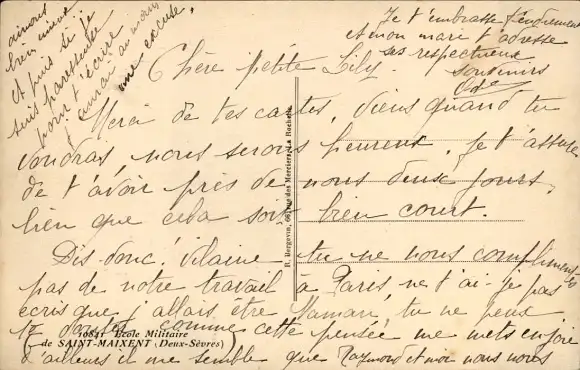 Chère petite Lily.
Merci de tes cartes, viens quand tu
voudras, nous serons heureux, je t'assure
de t'avoir près de nous deux jours,
bien que cela soit bien court.
Dis-donc! vilaine, tu ne nous complimentes
pas de notre travail à Paris, ne t'ai-je pas
écris que j'allais être Maman, tu ne peux
comme cette pensée me mets en joie
d'ailleurs il me semble que Raymond et moi nous nous
aimons
bien mieux
et puis si je
suis paresseuse
pour t'écrire
j'aurai au moins
une excuse.
Je t'embrasse tendrement
et mon mari t'adresse
ses respectueux
souvenirs
R. Bergevin, rue des Merciers, La Rochelle
École Militaire
de SAINT-MAIXENT (Deux-Sèvres)